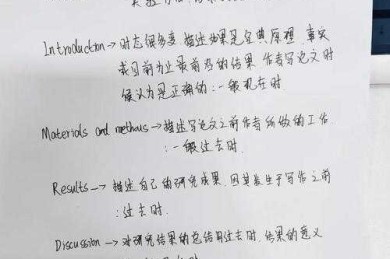 Introduction → 时态很多变 描述如果是宝典原理 事实
或目前为止最前沿的结果 作者写论文时
候认为是正确的:一般现在时
Materials and methods → 描述写论文之前作者所做的工作
:一般过去时.
Results → 描述自己的研究成果 因其发生于写作之前
:过去时.
Discussion → 对研究结果的总结用过去时. 结果的意义